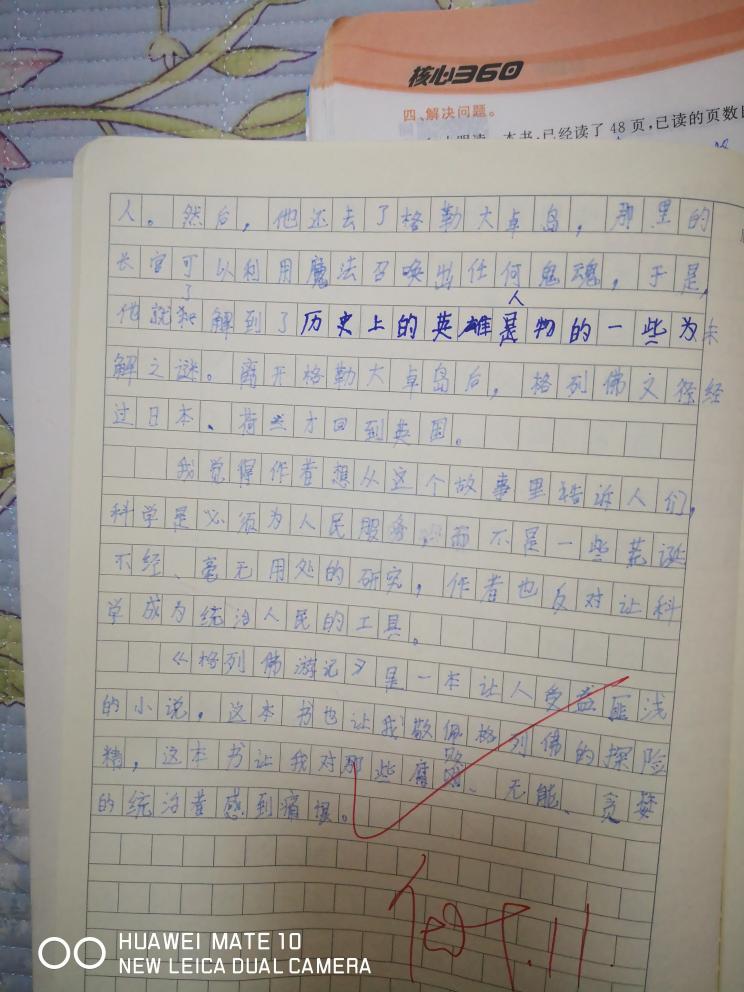 核心360
四、解决问题。
本书,已经读了48页,已读的页数
人。然后,他还去了格勒大卓岛,那里的
长官可以利用魔法召唤出任何鬼魂,于是,
他就了解到了历史上的英雄人物的一些为未
解之谜。离开格勒大卓岛后,格列佛又经
过日本、荷兰才回到英国。
我觉得作者想从这个故事里告诉人们,
科学是必须为人民服务,而不是一些荒诞
不经、毫无用处的研究,作者也反对让科
学成为统治人民的工具。
《格列佛游记》是一本让人受益匪浅
的小说,这本书也让我敬佩格列佛的探险
精,这本书让我对那些腐败、无能、贪婪
的统治者感到痛恨。
HUAWEI MATE 10
NEW LEICA DUAL CAMERA